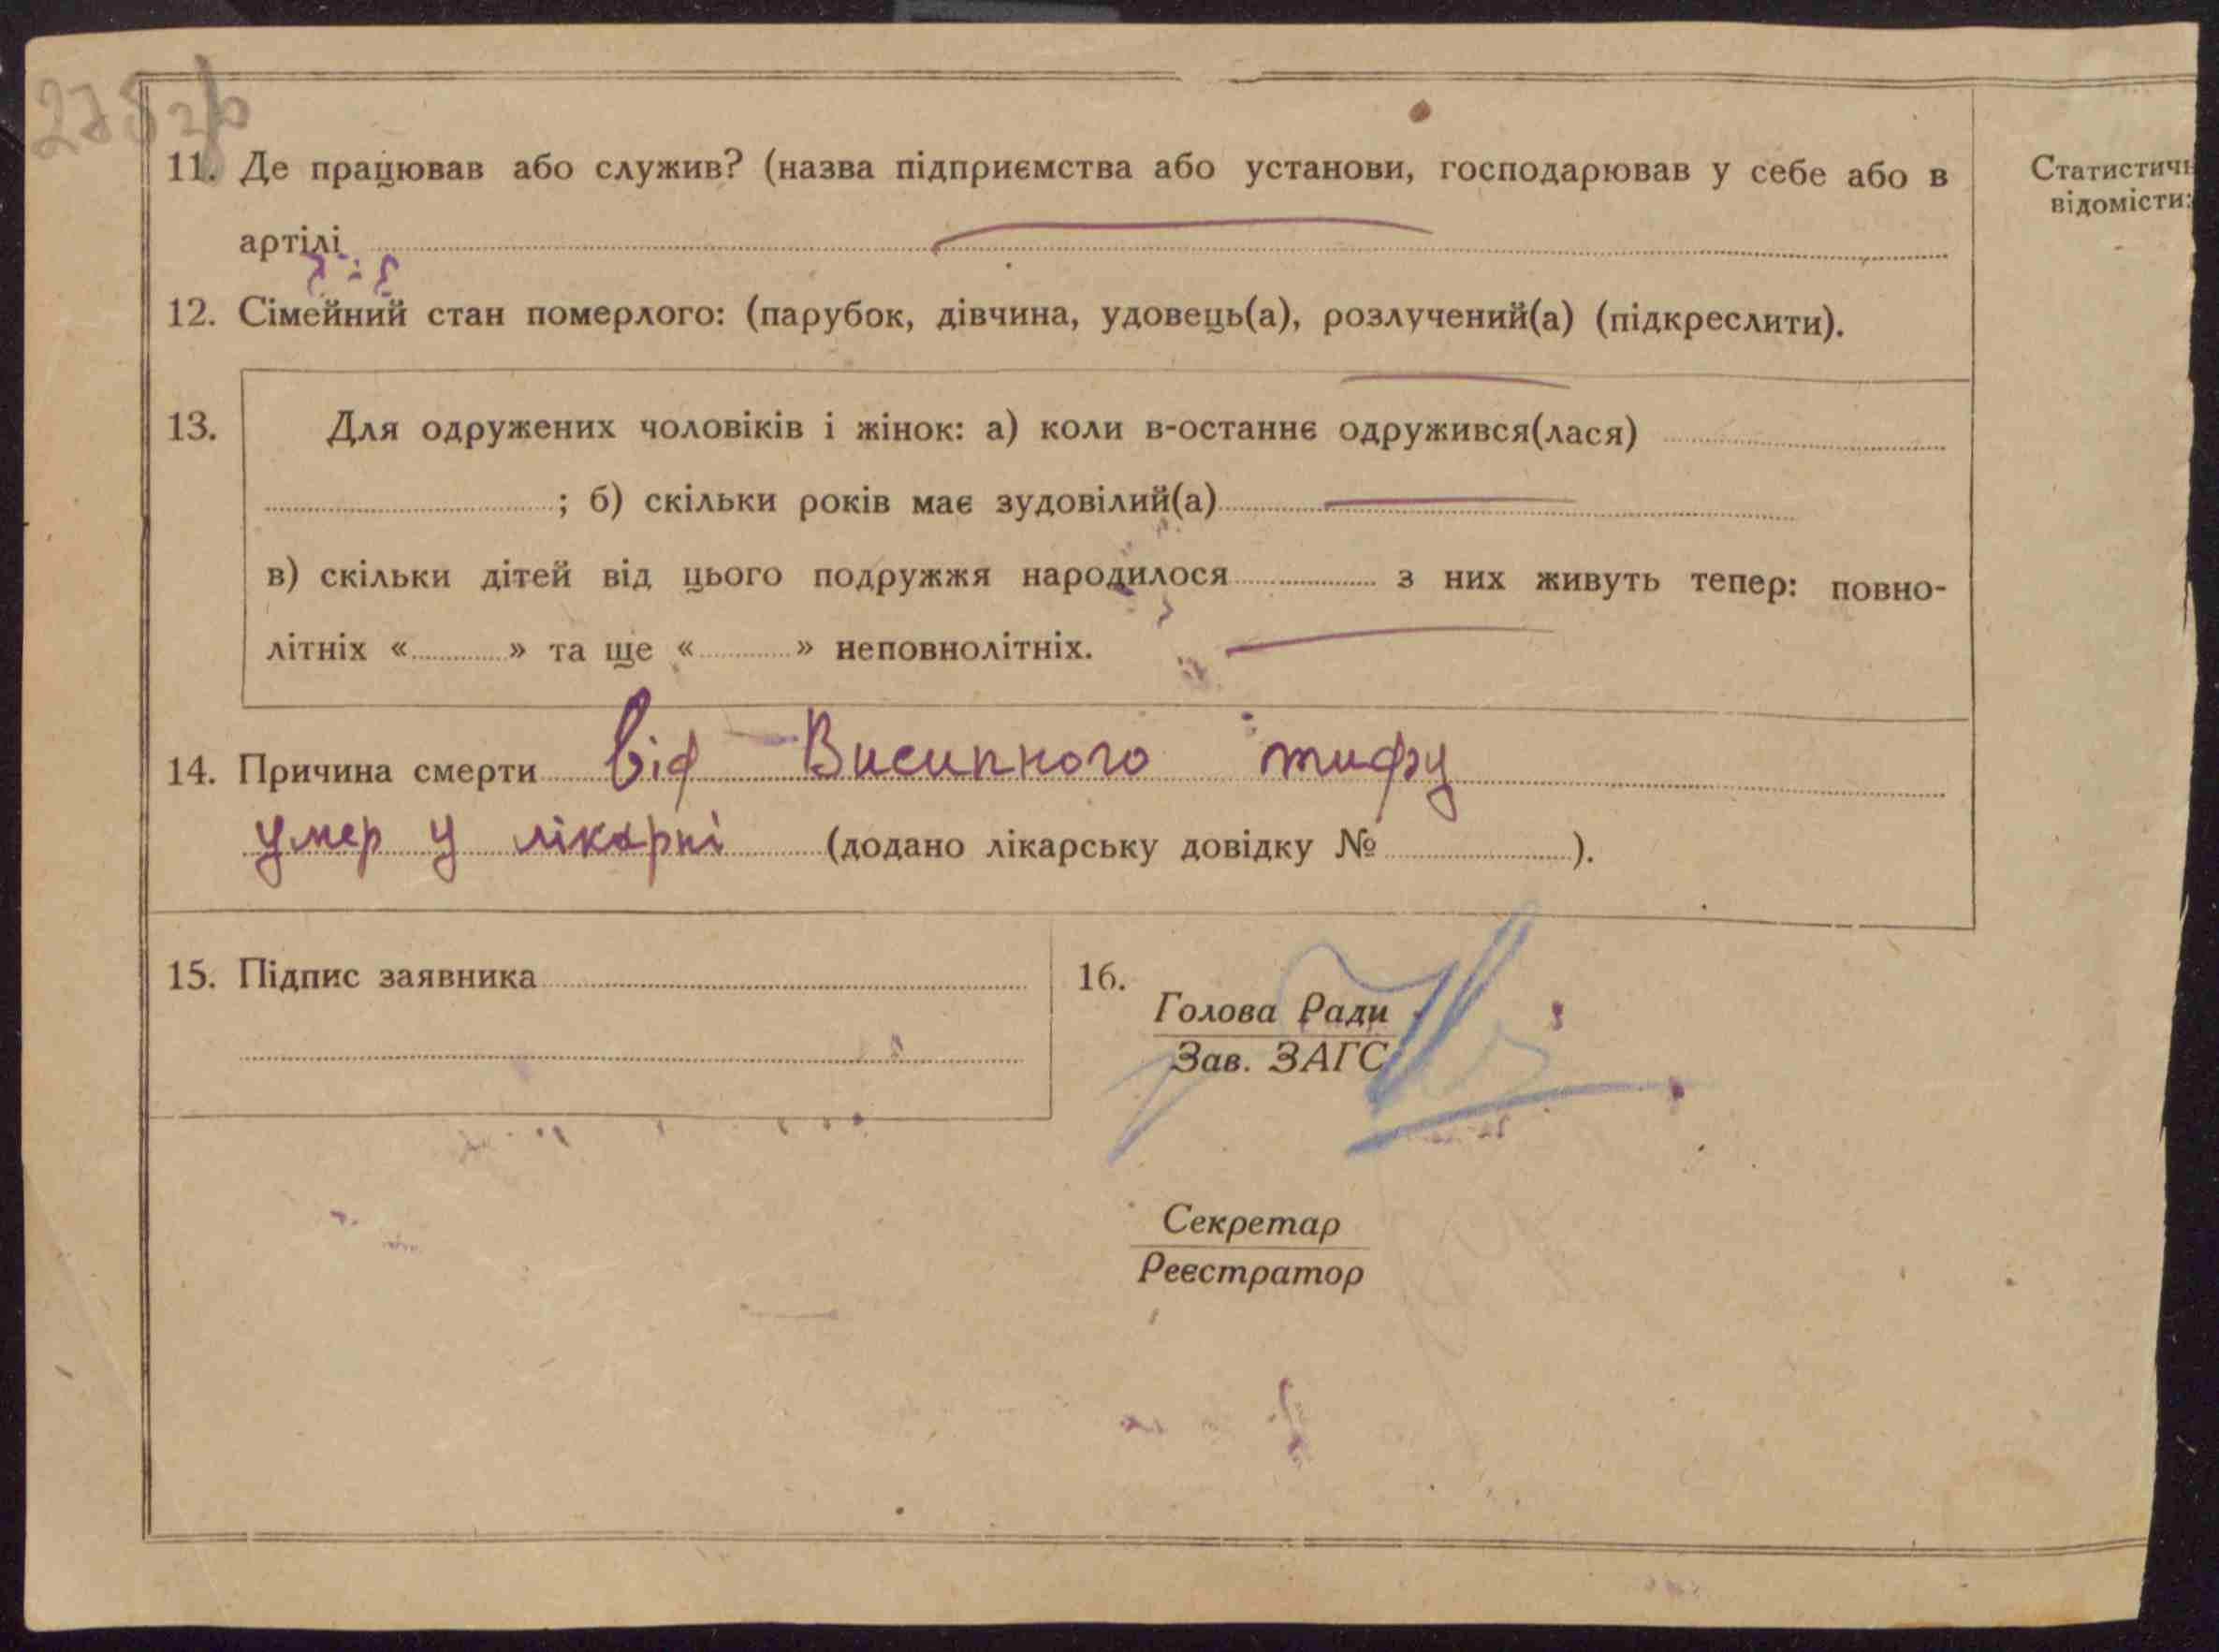 278 зв
11. Де працював або служив? (назва підприємства або установи, господарював у себе або в
артілі
12. Сімейний стан померлого: (парубок, дівчина, удовець(а), розлучений(а) (підкреслити).
13. Для одружених чоловіків і жінок: а) коли в-останнє одружився(лася)
; б) скільки років має зудовілий(а)
в) скільки дітей від цього подружжя народилося з них живуть тепер: повно-
літніх «» та ще «» неповнолітніх.
14. Причина смерти від Висипного тифу
умер у лікарні (додано лікарську довідку №).
15. Підпис заявника
16.
Голова Ради
Зав. ЗАГС
Секретар
Реєстратор
Статистичн
відомісти: